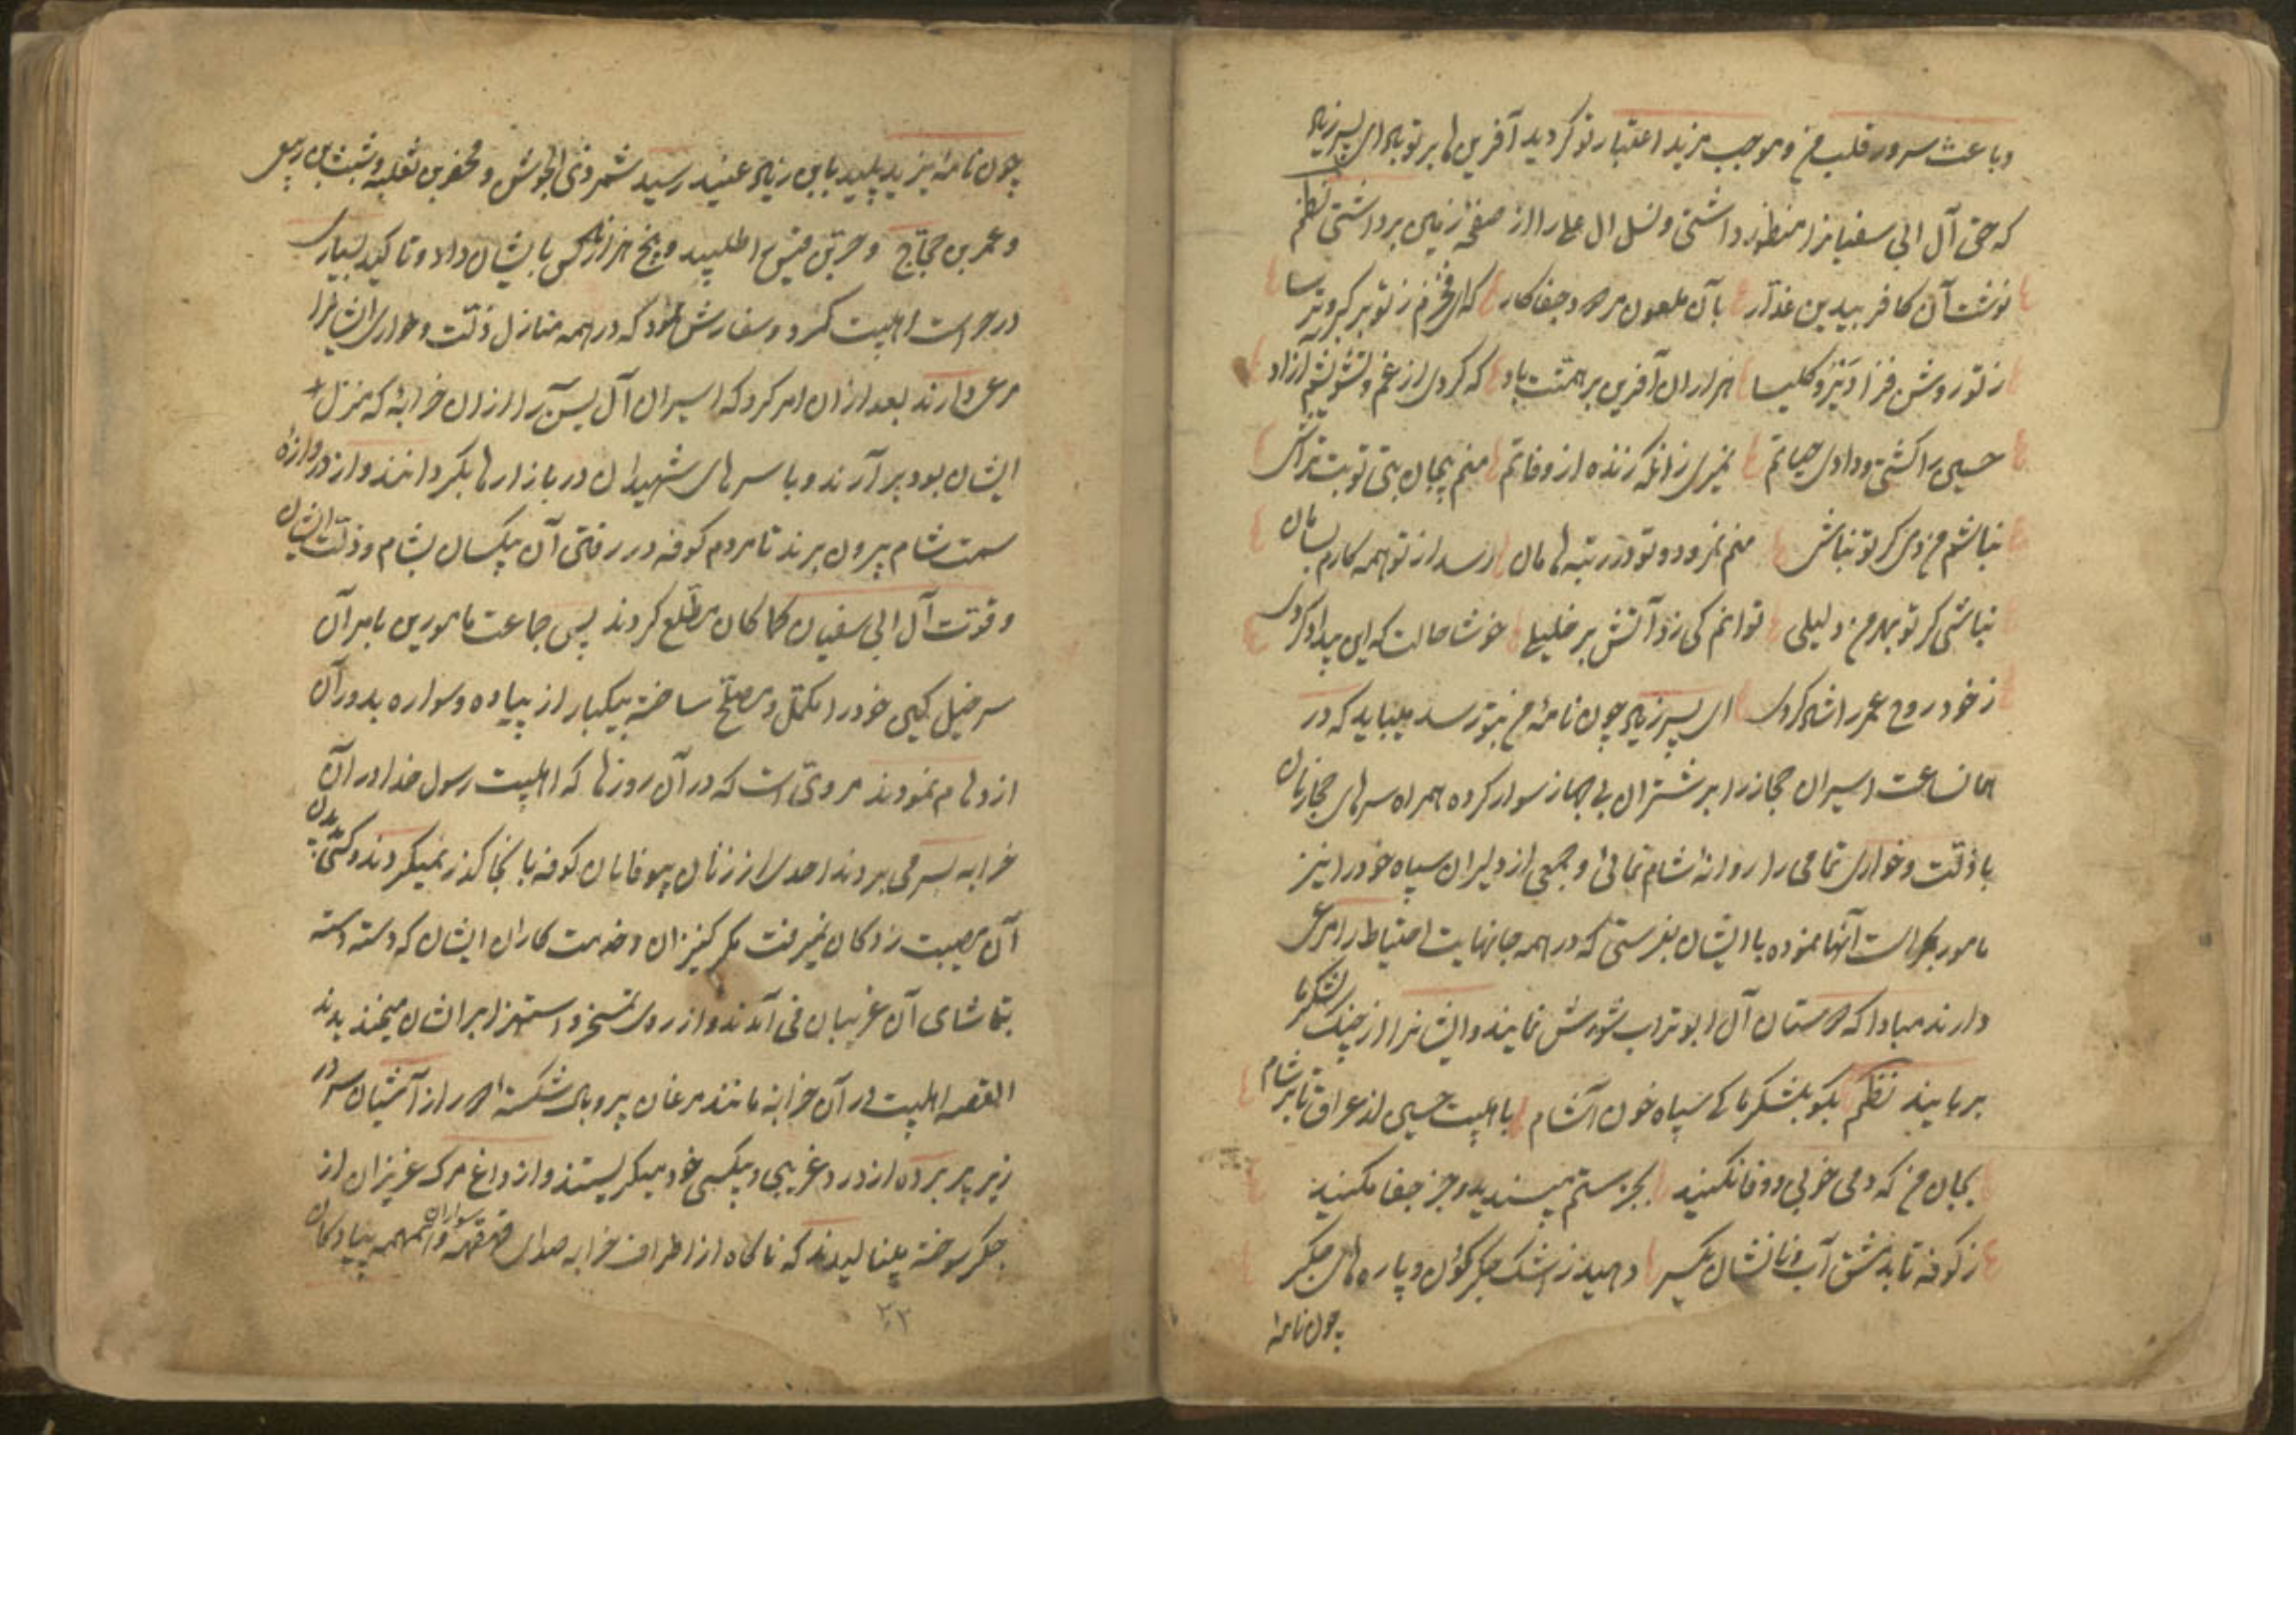 و باعث سرور قلب من و موجب مزید اعتبار تو کردید آفرین ها بر تو باد ای پسر زیاد
که حق آل ابی سفیانرا منظور داشتی و نسل ال علی را از صفحه زمین برداشتی نظم
نوشت آن کافر بیدین غدار بآن ملعون مرتد و جفا کار که ای
ز تو روشن فزا دیر و کلیسا هزاران آفرین بر همتت باد که کردی از غم و تشویشم آزاد
حسین را کشتی و دادی حیاتم نمیری زانکه زنده از وفاتم منم بیجان بتی تو بت تراش
نباشم من دمی کر تو نباشی منم نمرود و تو در رتبه هامان رسد از تو همه کارم بسامان
نباشی کر تو بهر من دلیلی توانم کی زد آتش بر خلیلی خوشا حالت که این بیداد کردی
ز خود روح عمر را شاد کردی ای پسر زیاد چون نامهٔ من بتو رسد میباید که در
همانساعت اسیران حجاز را بر شتران بی جهاز سوار کرده همراه سرهای
با ذلت و خواری تمامی را روانه شام نمائی و جمعی از دلیران سپاه خود را نیز
مامور بحراست آنها نموده با ایشان بفرستی که در همه جا نهایت احتیاط را مرعی
دارند مبادا که دوستان آل ابو تراب شورش نمایند و ایشانرا از چنک لشکر ما
بربایند نظم بکو بلشکر ما کی سپاه خون آشام باهلبیت حسین از عراق تا بر شام
بجان من که دمی خوبی و وفا نکنید بجز ستم مپسندید و جز جفا مکنید
ز کوفه تا بدمشق آب و نانشان یکسر دهید ز اشک جکرکون و پاره های جکر
چون نامهٔ
چون نامهٔ یزید پلید بابن زیاد عنید رسید شمر ذی الجوشن و محفر بن ثعلبه و شبث بن ربعی
و عمر بن حجاج و حر بن قیس را طلبید و پنج هزار کس بایشان داد و تاکید بسیار
در حراست اهلبیت کرد و سفارش نمود که در همه منازل ذلت و خواری ایشانرا
مرعی دارند بعد از آن امر کرد که اسیران آل یسن را از آن خرابهٔ که منزل
ایشان بود بر آرند و با سرهای شهیدان در بازارها بکردانند و از دروازهٔ
سمت شام بیرون برند تا مردم کوفه در رفتن آن بیکسان بشام و ذلت ایشان
و قوت آل ابی سفیان کماکان مطلع کردند پس جماعت مامورین بامر آن
سرخیل کین خود را مکمل و مصلح ساخته بیکبار از پیاده و سواره بدور آن
ازدهام نمودند مرویست که در آن روزها که اهلبیت رسول خدا در آن
خرابه بسر می بردند احدی از زنان بیوفایان کوفه بآنجا کذر نمیکردند و کسی بدیدن
آن مصیبت زدکان نمیرفت مکر کنیزان و خدمت کاران ایشان که دسته دسته
بتماشای آن غریبان می آمدند و از روی تمسخر و استهزا بر ایشان میخندیدند
القصه اهلبیت در آن خرابه مانند مرغان پر و بال شکسته دور از آشیان سر در
زیر پر برده از درد غریبی و بیکسی خود میکریستند و از داغ مرک عزیزان از
جکر سوخته مینالیدند که ناکاه از اطراف خرابه صدای قهقهه سواران و همهمه پیادکان
۳۲